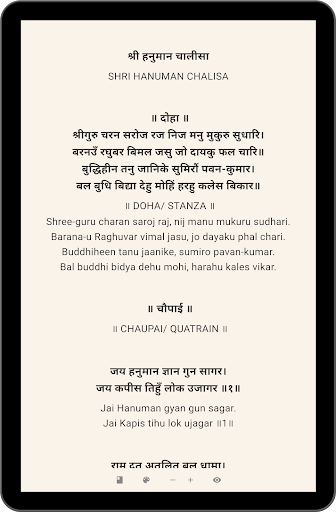 श्री हनुमान चालीसा
SHRI HANUMAN CHALISA
॥ दोहा ॥
श्रीगुरु चरन सरोज रज निज मनु मुकुरु सुधारि।
बरनउँ रघुबर बिमल जसु जो दायकु फल चारि॥
बुद्धिहीन तनु जानिके सुमिरौं पवन-कुमार।
बल बुधि बिद्या देहु मोहिं हरहु कलेस बिकार॥
॥ DOHA/ STANZA ॥
Shree-guru charan saroj raj, nij manu mukuru sudhari.
Barana-u Raghuvar vimal jasu, jo dayaku phal chari.
Buddhiheen tanu jaanike, sumiro pavan-kumar.
Bal buddhi bidya dehu mohi, harahu kales vikar.
॥ चौपाई ॥
॥ CHAUPAI/ QUATRAIN ॥
जय हनुमान ज्ञान गुन सागर।
जय कपीस तिहुँ लोक उजागर ॥१॥
Jai Hanuman gyan gun sagar.
Jai Kapis tihu lok ujagar ॥1॥
राम दूत अतुलित बल धामा।